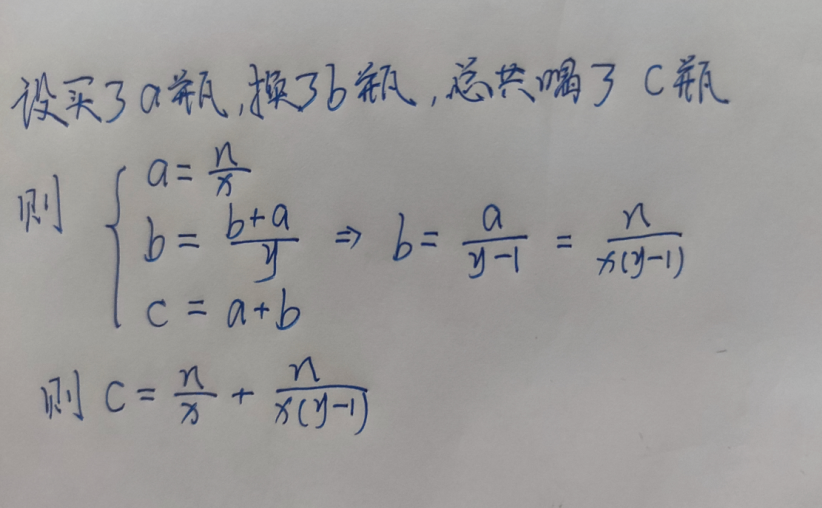 设买了a瓶,换了b瓶,总共喝了c瓶
则 { a = n/x
b = (b+a)/y ⇒ b = a/(y-1) = n/(x(y-1))
c = a+b
则 c = n/x + n/(x(y-1))